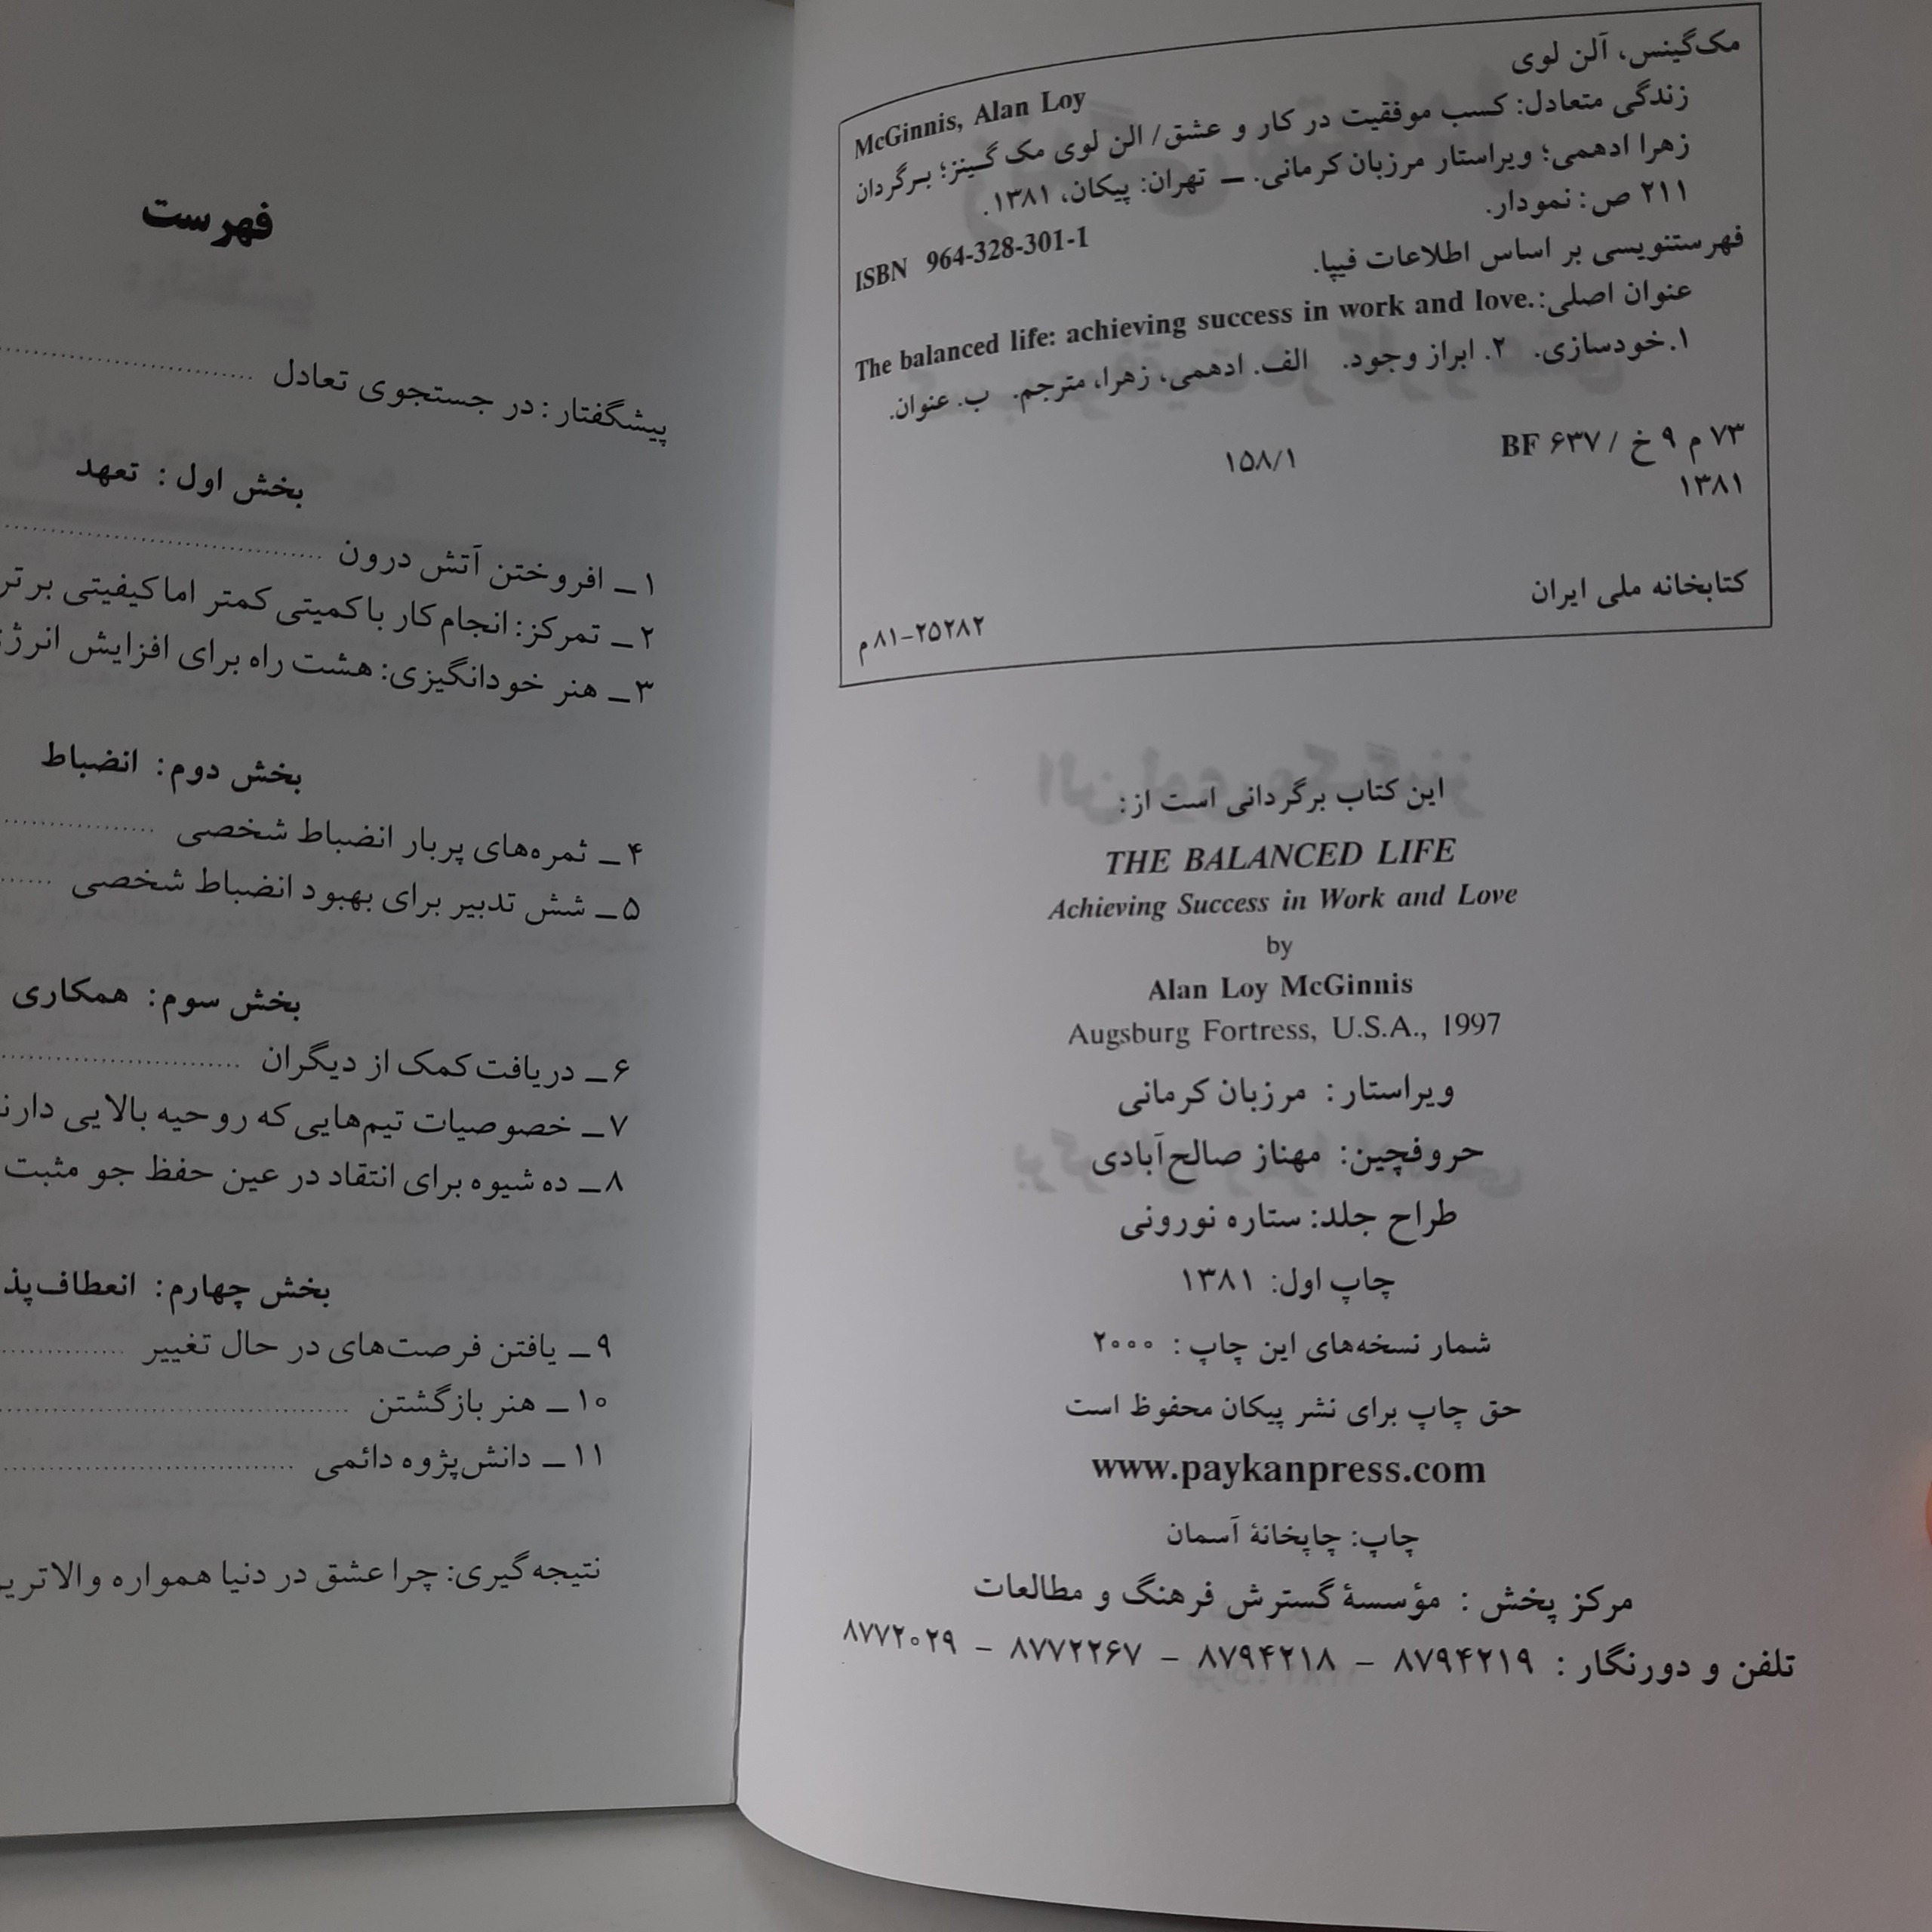 مک‌گینس، آلن لوی
McGinnis, Alan Loy
زندگی متعادل: کسب موفقیت در کار و عشق/ الن لوی مک گینز؛ برگردان
زهرا ادهمی؛ ویراستار مرزبان کرمانی. ـ تهران: پیکان، ۱۳۸۱.
۲۱۱ ص: نمودار.
ISBN 964-328-301-1
فهرستنویسی بر اساس اطلاعات فیپا.
عنوان اصلی: The balanced life: achieving success in work and love.
۱.خودسازی. ۲. ابراز وجود. الف. ادهمی، زهرا، مترجم. ب. عنوان.
۷۳ م ۹ خ / ۶۳۷ BF ۱۵۸/۱
۱۳۸۱
کتابخانه ملی ایران
۸۱-۲۵۲۸۲ م
این کتاب برگردانی است از:
THE BALANCED LIFE
Achieving Success in Work and Love
by
Alan Loy McGinnis
Augsburg Fortress, U.S.A., 1997
ویراستار: مرزبان کرمانی
حروفچین: مهناز صالح‌آبادی
طراح جلد: ستاره نورونی
چاپ اول: ۱۳۸۱
شمار نسخه‌های این چاپ: ۲۰۰۰
حق چاپ برای نشر پیکان محفوظ است
www.paykanpress.com
چاپ: چاپخانهٔ آسمان
مرکز پخش: مؤسسهٔ گسترش فرهنگ و مطالعات
تلفن و دورنگار: ۸۷۹۴۲۱۹ – ۸۷۹۴۲۱۸ – ۸۷۷۲۲۶۷ – ۸۷۷۲۰۲۹
فهرست
پیشگفتار: در جستجوی تعادل
بخش اول: تعهد
۱ـ افروختن آتش درون
۲ـ تمرکز: انجام کار با کمیتی کمتر اما کیفیتی برتر
۳ـ هنر خودانگیزی: هشت راه برای افزایش
بخش دوم: انضباط
۴ـ ثمره‌های پربار انضباط شخصی
۵ـ شش تدبیر برای بهبود انضباط شخصی
بخش سوم: همکاری
۶ـ دریافت کمک از دیگران
۷ـ خصوصیات تیم‌هایی که روحیه بالایی
۸ـ ده شیوه برای انتقاد در عین حفظ جو مثبت
بخش چهارم:
۹ـ یافتن فرصت‌های در حال تغییر
۱۰ـ هنر بازگشتن
۱۱ـ دانش‌پژوه دائمی
نتیجه‌گیری: چرا عشق در دنیا همواره